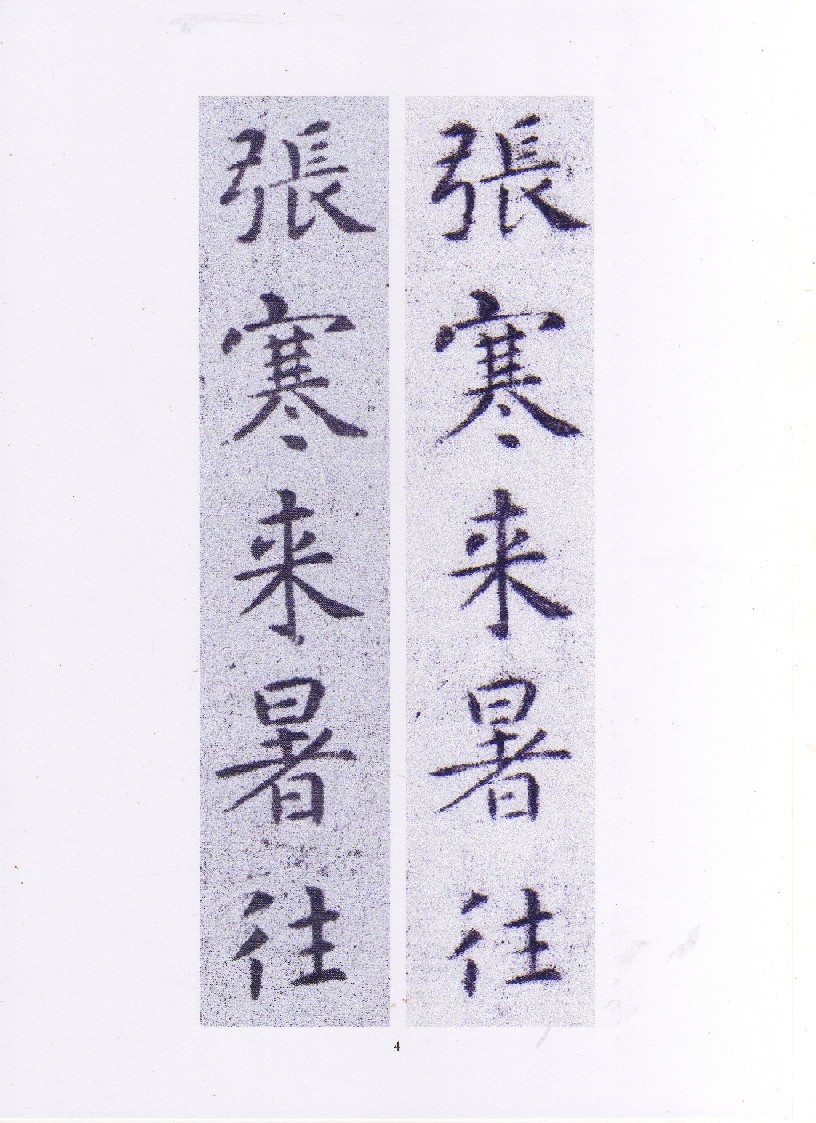 張寒来暑往
張寒来暑往
4